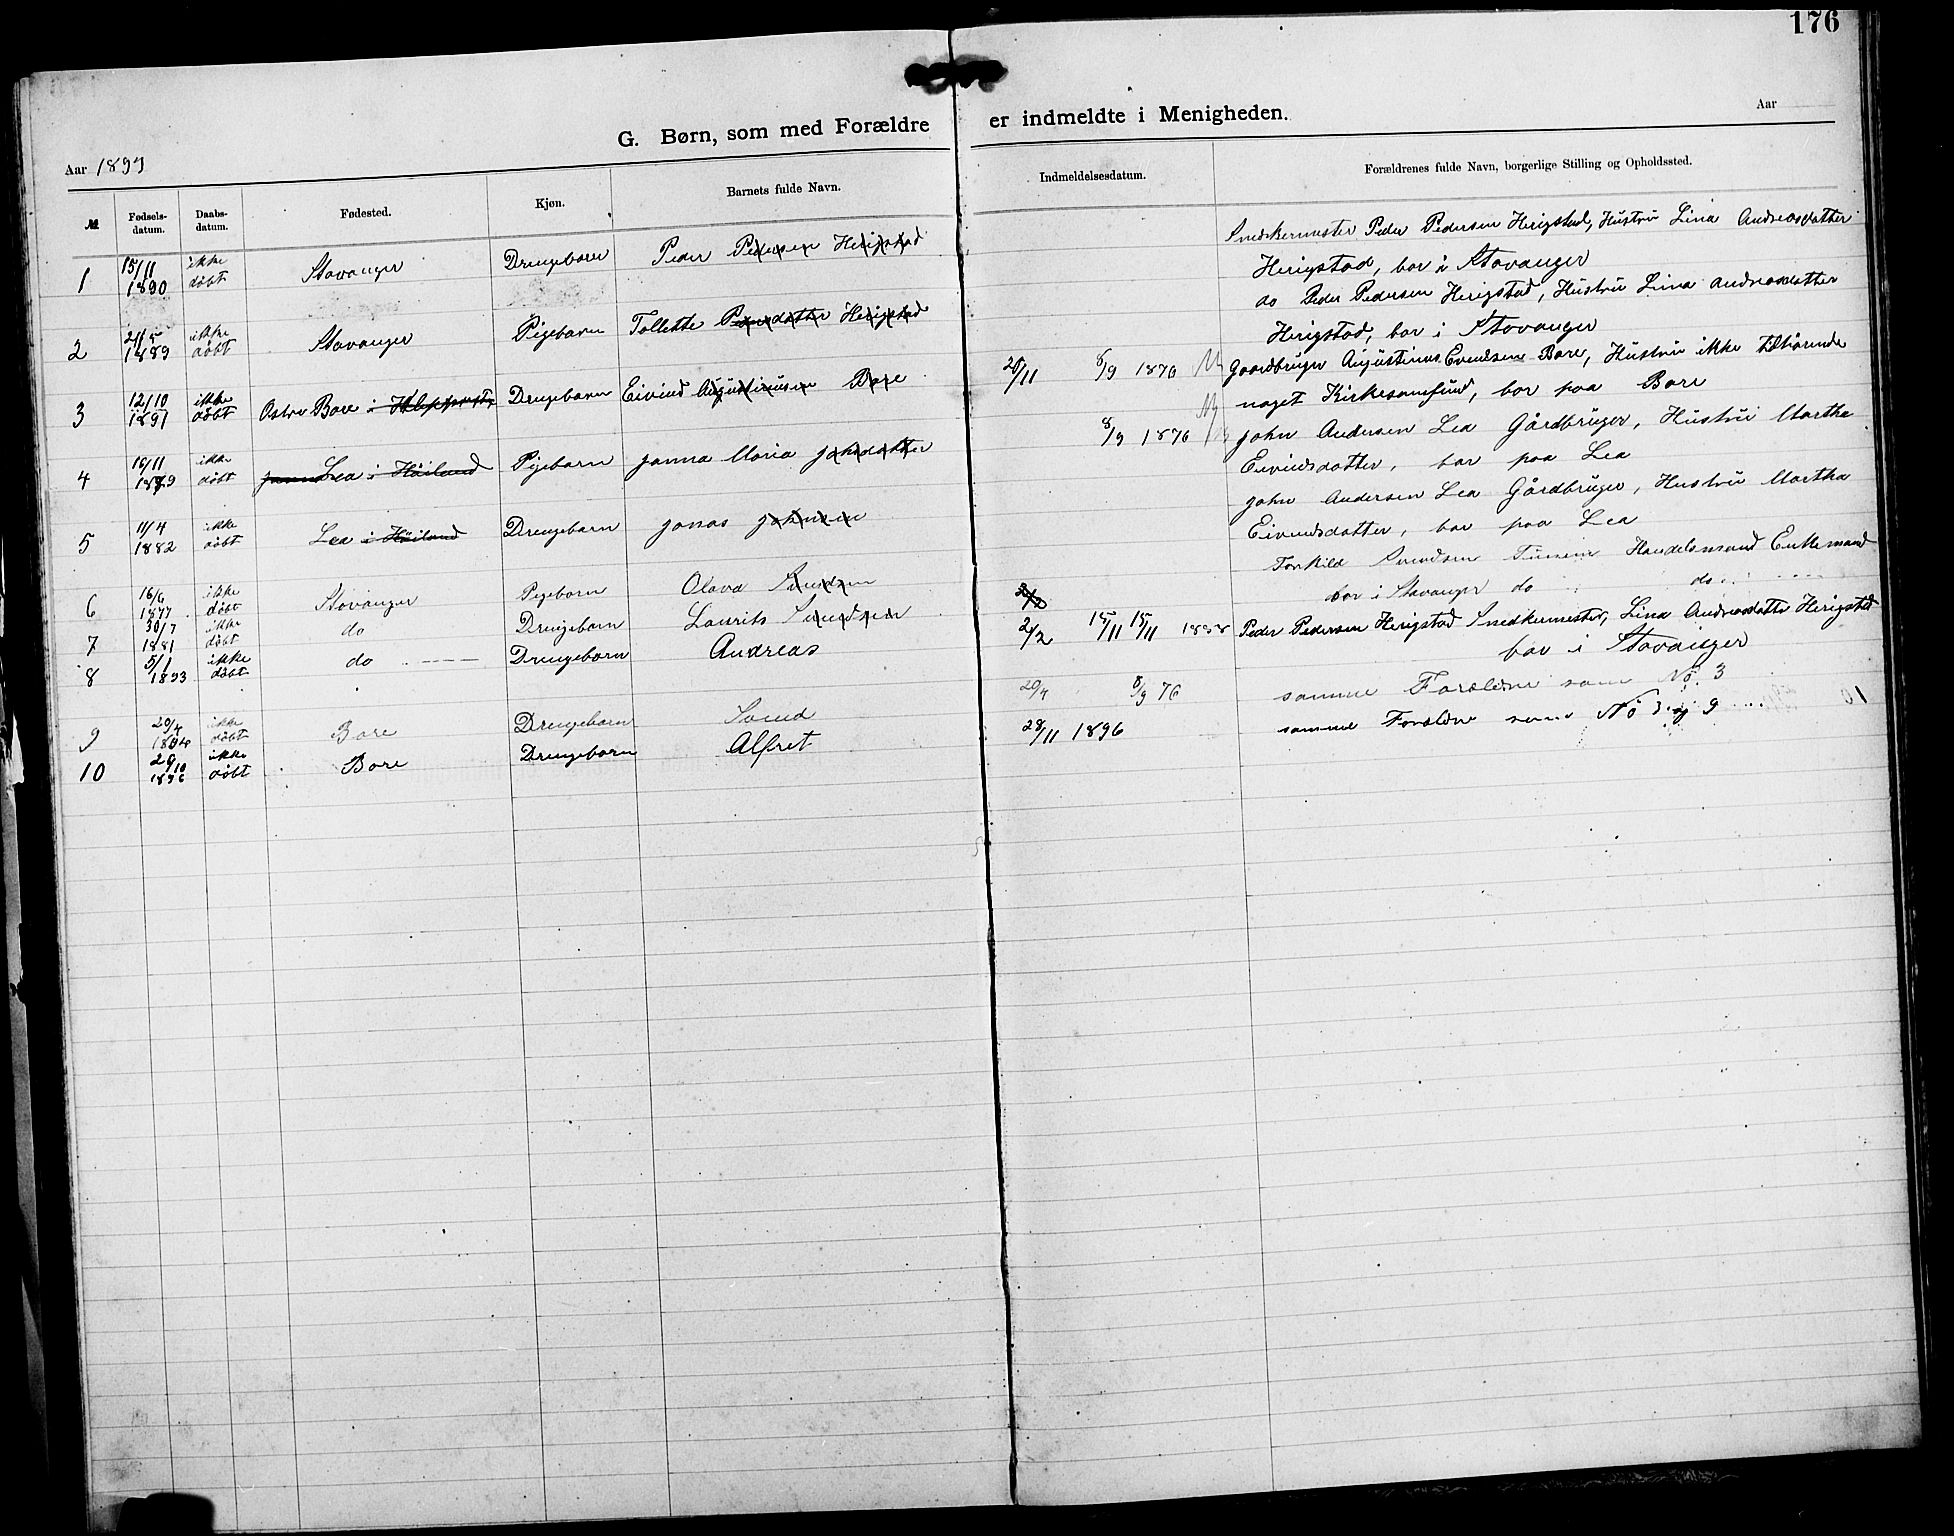 176
G. Børn, som med Forældre er indmeldte i Menigheden.
Aar
Aar
№ Fødsels-datum. Daabs-datum. Fødested. Kjøn. Barnets fulde Navn. Indmeldelsesdatum. Forældrenes fulde Navn, borgerlige Stilling og Opholdssted.
Snedkermester Peder Pedersen Herigstad, Hustru Lina Andreasdatter
1 15/11 1890 ikke døbt Stavanger Drengebarn Peder Pedersen Herigstad
Herigstad, bor i Stavanger
do Peder Pedersen Herigstad, Hustru Lina Andreasdatter
2 21/5 1889 ikke døbt Stavanger Pigebarn Tollette Pedersdatter Herigstad
Herigstad, bor i Stavanger
8/9 1876 Gaardbruger Augustinus Eivendsen Bore, Hustru ikke tilhørende
3 12/10 1891 ikke døbt Østre Bore i Drengebarn Eivind Augustinusen Bore
noget Kirkesamfund, bor paa Bore
8/9 1876 John Andersen Lea Gårdbruger, Hustru Martha
4 10/11 ikke døbt Lea i Høiland Pigebarn Janna Maria Johnsdatter
Eivindsdatter, bor paa Lea
John Andersen Lea Gårdbruger, Hustru Martha
5 11/4 1882 ikke døbt Lea i Høiland Drengebarn Jonas Johnsen
Eivendsdatter, bor paa Lea
Torkild Svendsen Handelsmand Enkemand
6 16/6 1877 ikke døbt Stavanger Pigebarn Olava Svendsen
bor i Stavanger do do
7 30/7 1881 ikke døbt do Drengebarn Laurits Svendsen
8 5/1 1893 ikke døbt do Drengebarn Andreas 2/2 15/11 15/11 Peder Pedersen Herigstad Snedkermester, Lina Andreasdatter Herigstad
bor i Stavanger
9 20/4 1894 ikke døbt Bore Drengebarn Svend 8/9 76 samme Forældre som No. 3
10 29/10 1896 ikke døbt Bore Drengebarn Alfret 28/11 1896 samme Forældre som No 3 og 9